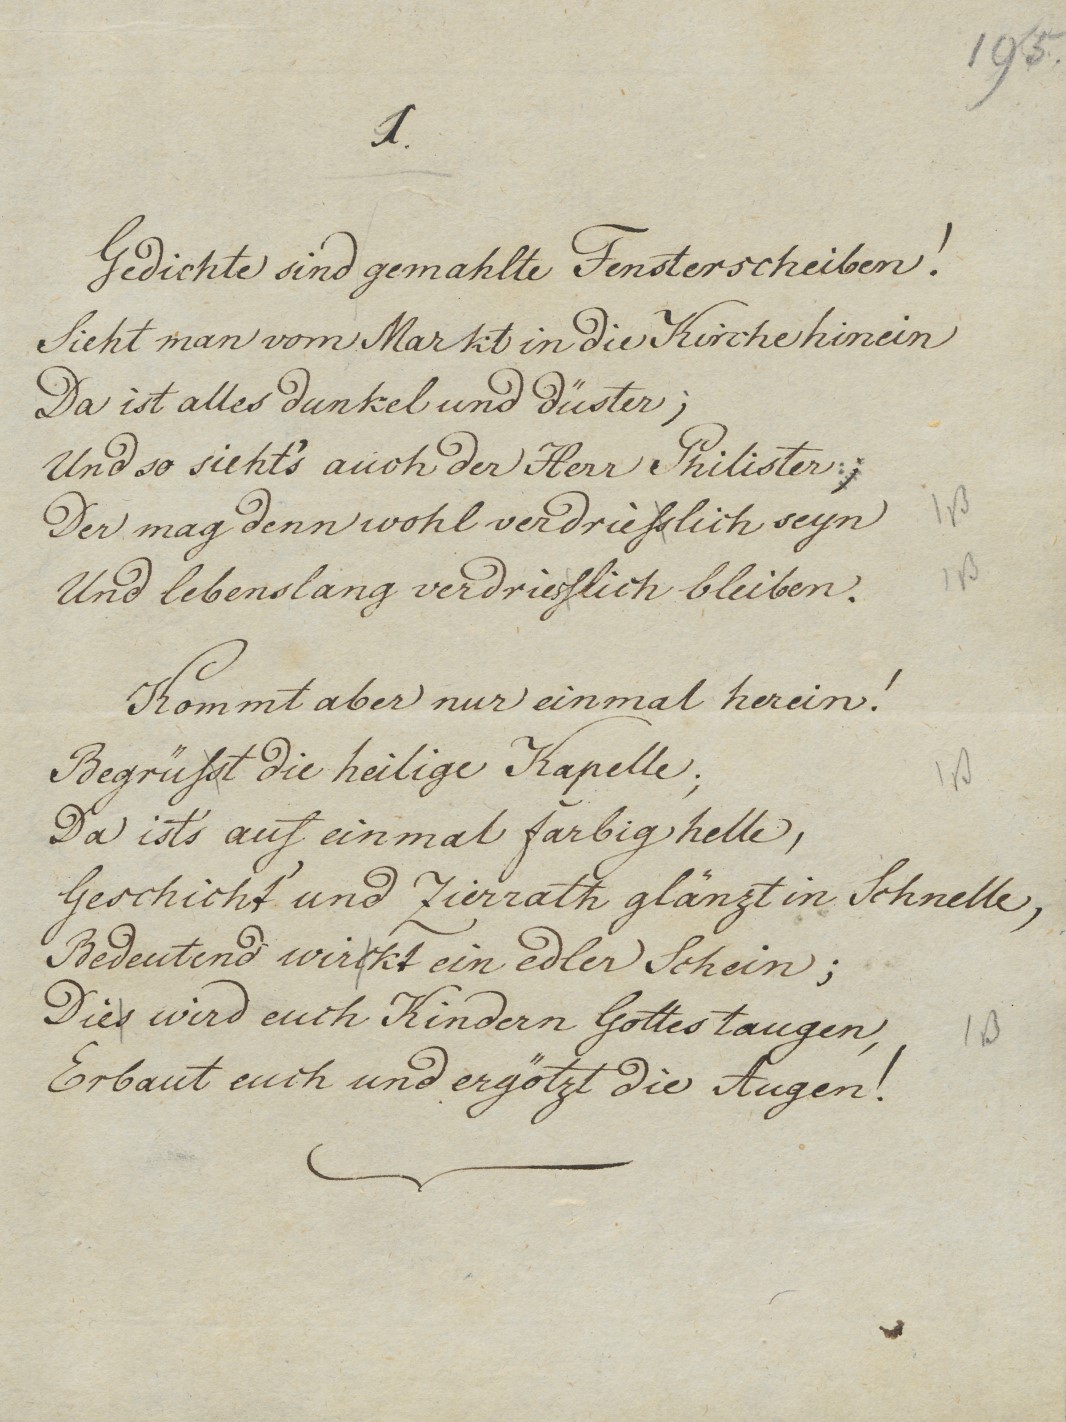 195.
1.
Gedichte sind gemahlte Fensterscheiben!
Sieht man vom Markt in die Kirche hinein
Da ist alles dunkel und düster;
Und so sieht's auch der Herr Philister;
Der mag denn wohl verdriesslich seyn ß
Und lebenslang verdriesslich bleiben. ß
Kommt aber nur einmal herein!
Begrüsst die heilige Kapelle; ß
Da ist's auf einmal farbig helle,
Geschicht' und Zierrath glänzt in Schnelle,
Bedeutend wirckt ein edler Schein;
Dies wird euch Kindern Gottes taugen, ß
Erbaut euch und ergötzt die Augen!